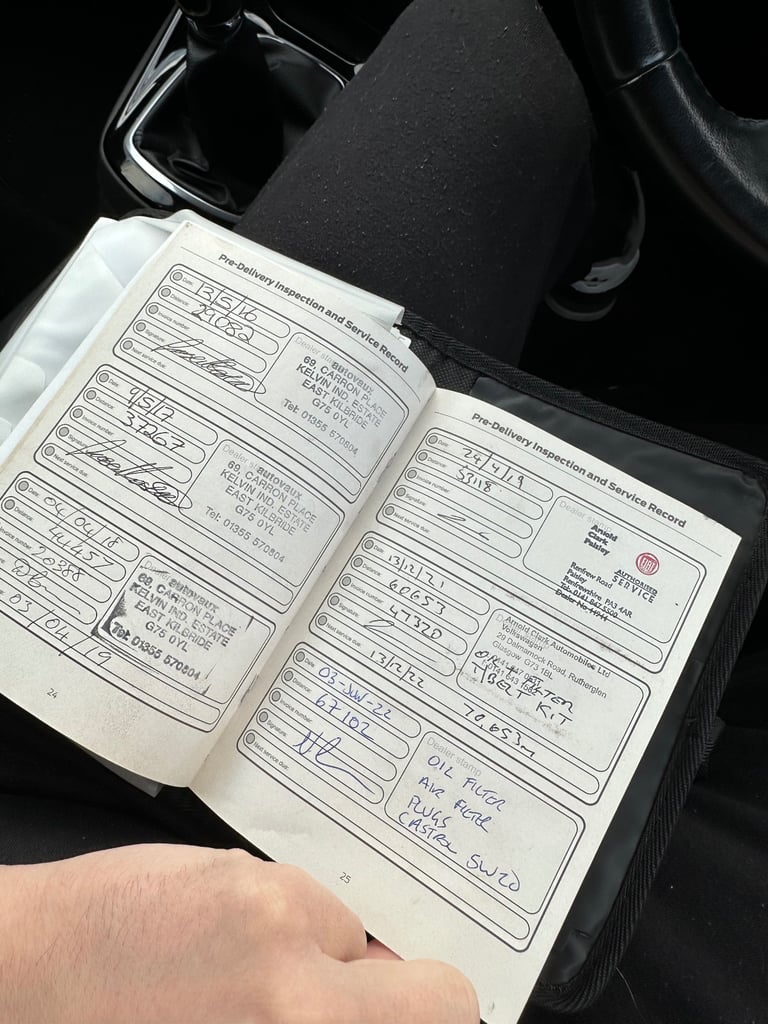 Pre-Delivery Inspection and Service Record
Date: 13/5/16
Distance: 29082
Invoice number:
Signature:
Next service due:
Dealer stamp
autovaux
69, CARRON PLACE
KELVIN IND. ESTATE
EAST KILBRIDE
G75 0YL
Tel: 01355 570804
Date: 9/5/17
Distance: 37267
Invoice number:
Signature:
Next service due:
Dealer stamp
autovaux
69, CARRON PLACE
KELVIN IND. ESTATE
EAST KILBRIDE
G75 0YL
Tel: 01355 570804
Date: 04/04/18
Distance: 44457
Invoice number: 20388
Next service due: 03/04/19
Dealer stamp
autovaux
69, CARRON PLACE
KELVIN IND. ESTATE
EAST KILBRIDE
G75 0YL
Tel: 01355 570804
24
Pre-Delivery Inspection and Service Record
Date: 24/4/19
Distance: 53118
Invoice number:
Signature:
Next service due:
Dealer stamp
Arnold
Clark
Paisley
Renfrew Road
Paisley
Renfrewshire PA3 4AR
Tel: 0141 847 5500
Dealer No
FIAT
AUTHORISED
SERVICE
Date: 13/12/21
Distance: 60653
Invoice number: 47320
Signature:
Next service due: 13/12/22 70,653m
Arnold Clark Automobiles Ltd
Volkswagen
29 Dalmarnock Road, Rutherglen
Glasgow G73 1BL
OIL FILTER
TBELT KIT
Date: 03-JUN-22
Distance: 67102
Invoice number:
Signature:
Next service due:
Dealer stamp
OIL FILTER
AIR FILTER
PLUGS
CASTROL 5W20
25